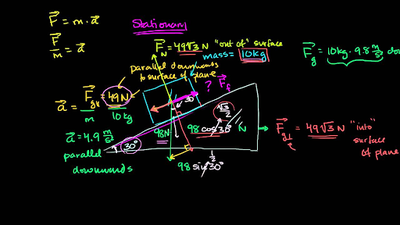 F = m·a
F/m = a
Stationary
F_N = 49√3 N "out of" surface
mass = 10kg
F_g = 10kg·9.8 m/s² down
parallel downwards
to surface of plane
a = F_g∥/m = 49N/10kg
? F_f
30°
a = 4.9 m/s²
parallel
downwards
98N
98 cos 30° N
√3/2
F_g⊥ = 49√3 N "into"
surface
of plane
30°
98 sin 30°
1/2